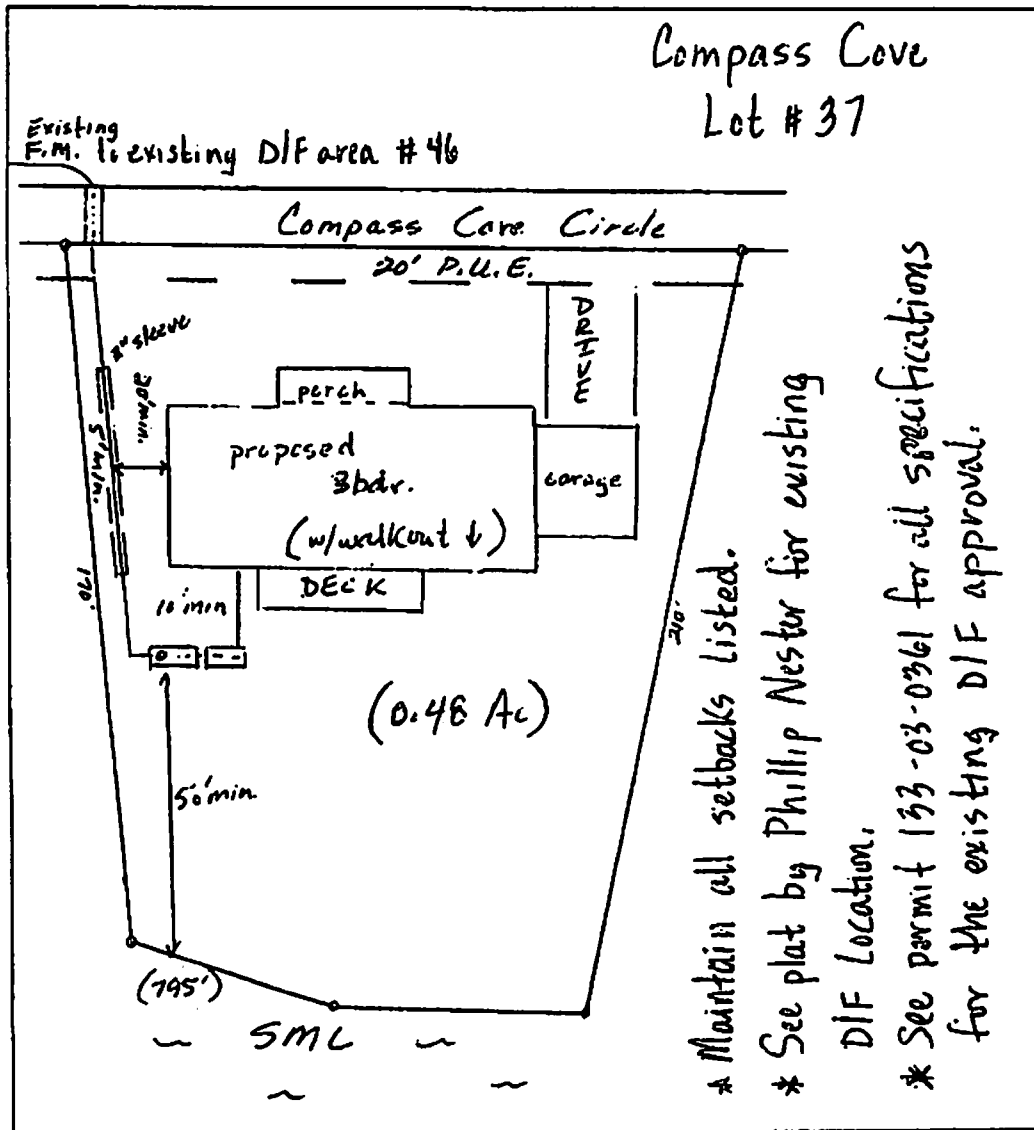 Compass Cove
Lot # 37
Existing
F.M. to existing D/F area # 46
Compass Cove Circle
20' P.U.E.
DRIVE
sleeve
20' min.
5' min.
porch
proposed
3 bdr.
(w/walkout ↓)
garage
DECK
10' min
170'
210'
(0.48 Ac)
50' min.
(795')
SML
* Maintain all setbacks listed.
* See plat by Phillip Nester for existing
D/F Location.
* See permit 133-03-0361 for all specifications
for the existing D/F approval.